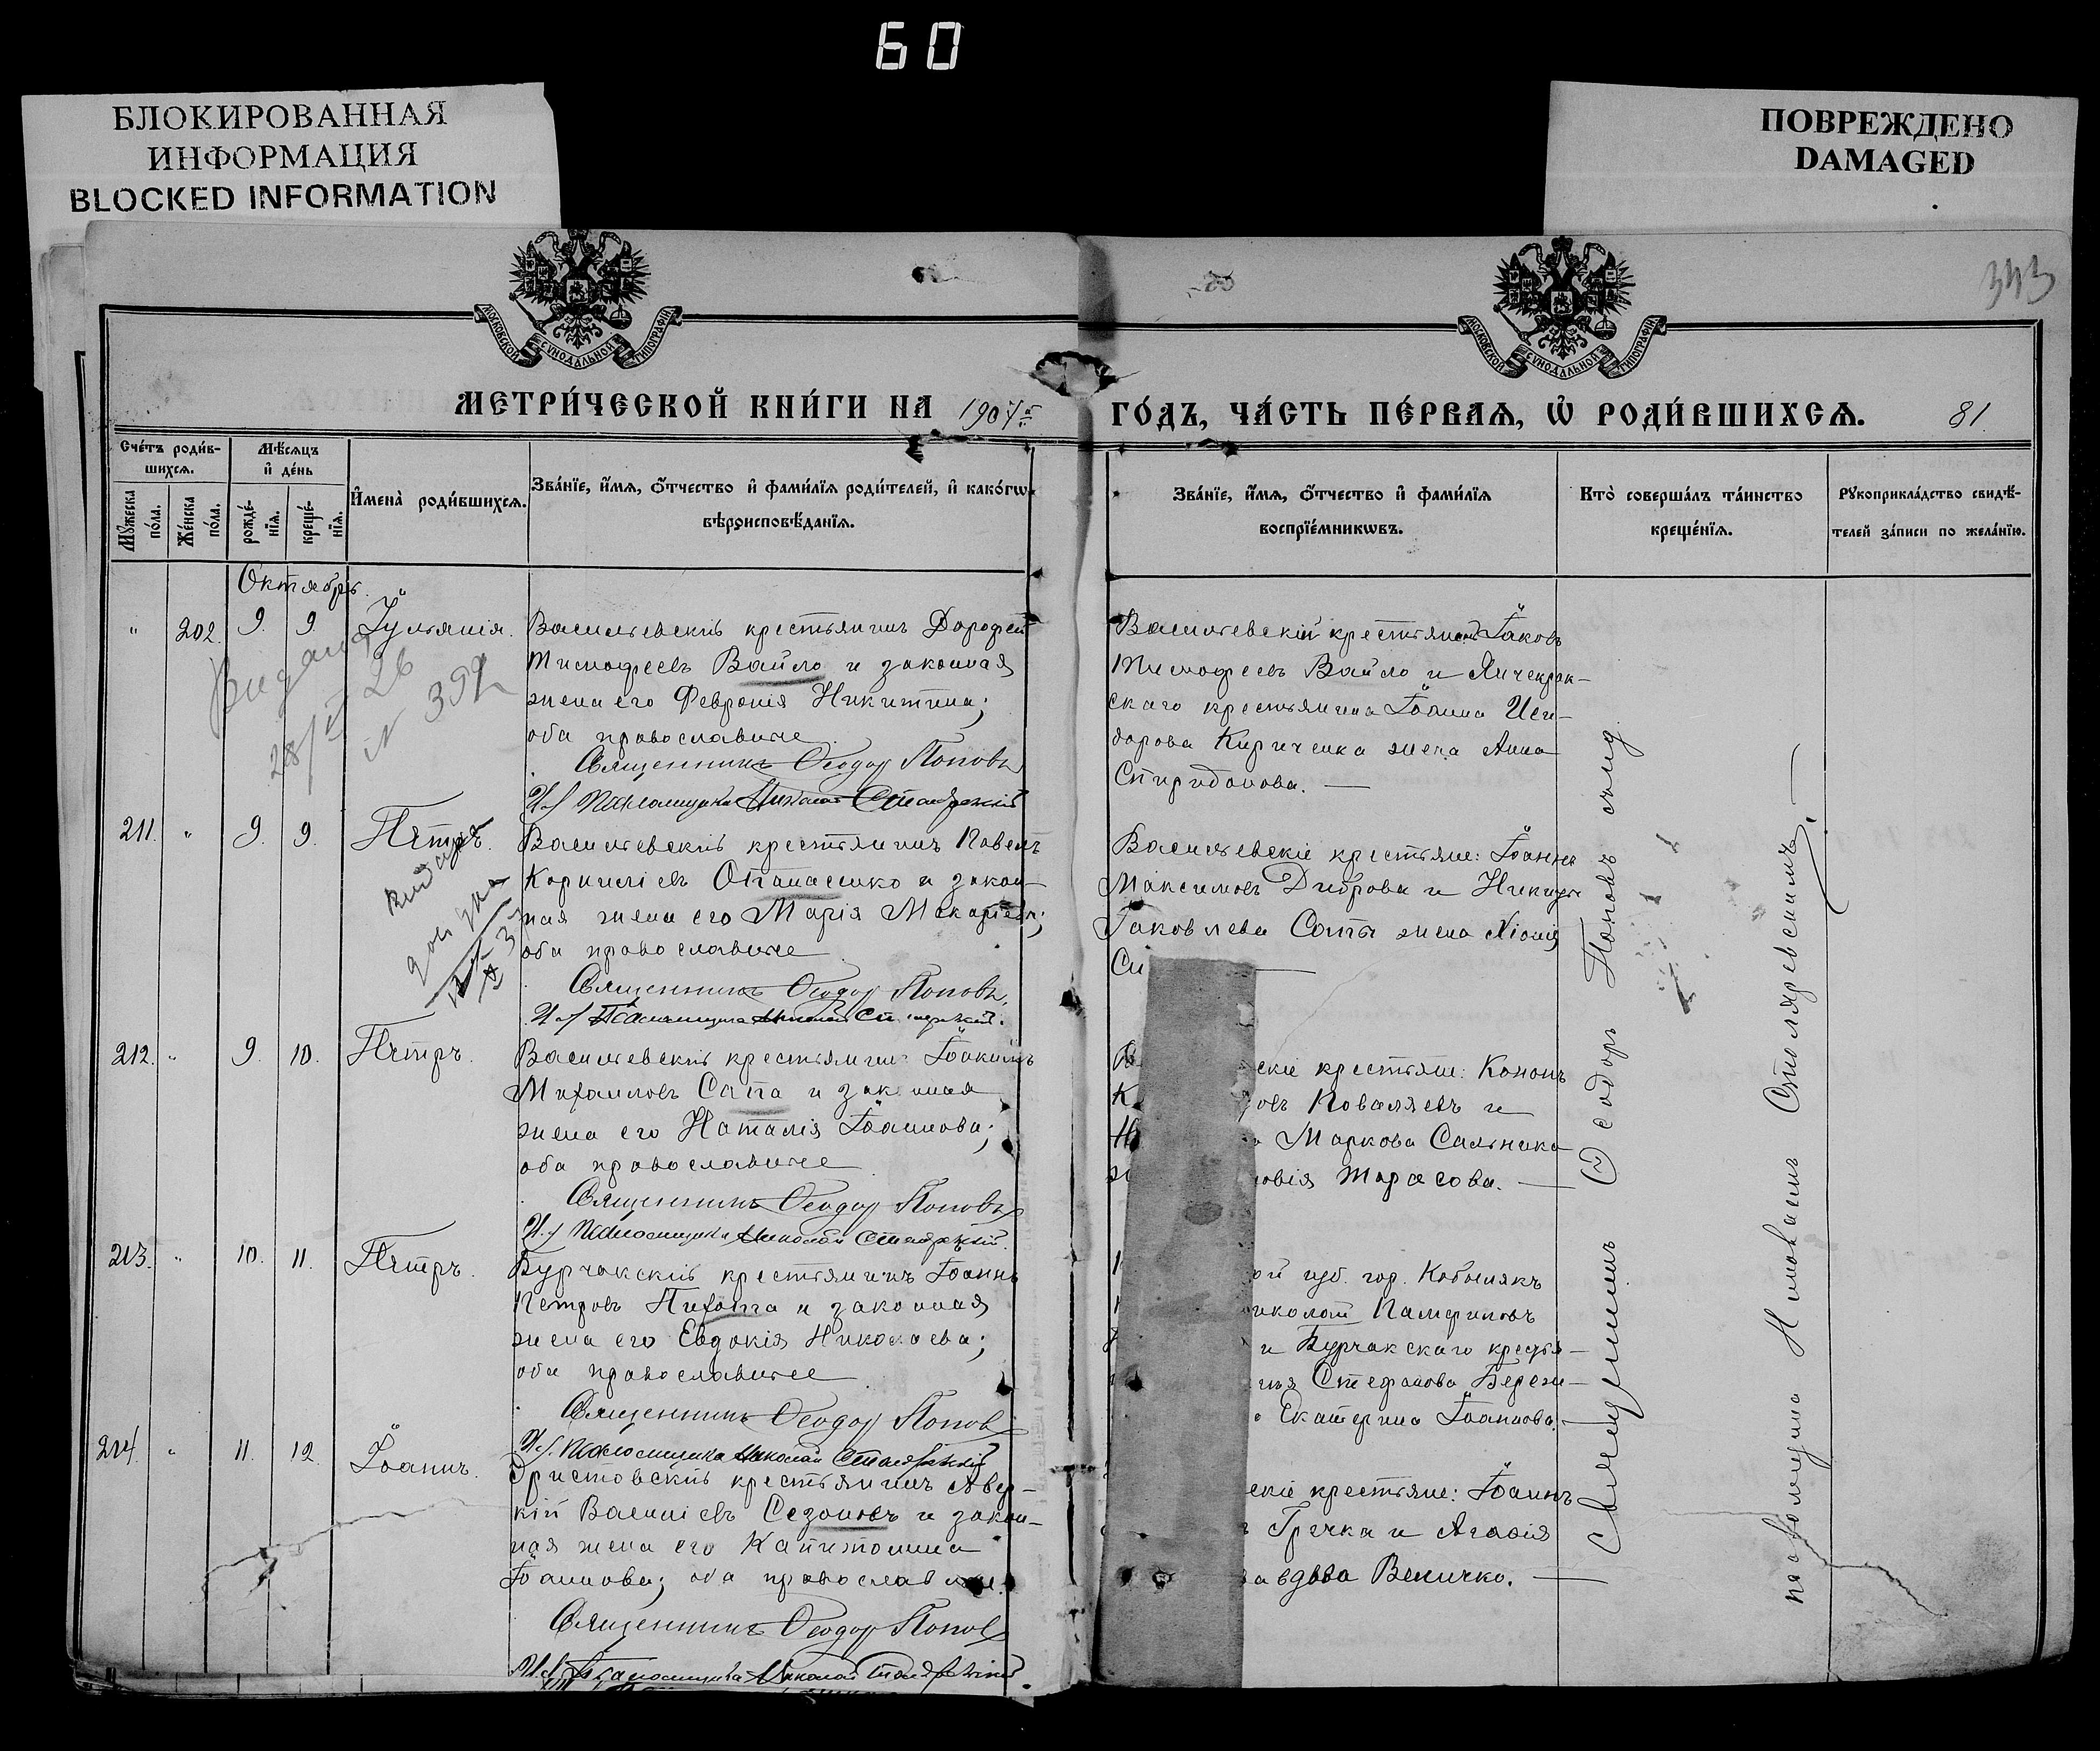 60
БЛОКИРОВАННАЯ
ИНФОРМАЦИЯ
BLOCKED INFORMATION
ПОВРЕЖДЕНО
DAMAGED
343
МОСКОВСКОЙ СѴНОДАЛЬНОЙ ТИПОГРАФІИ
МОСКОВСКОЙ СѴНОДАЛЬНОЙ ТИПОГРАФІИ
МЕТРИ́ЧЕСКОЙ КНИ́ГИ НА 1907 ГО́ДЪ, ЧА́СТЬ ПЕ́РВАѦ, Ѡ҆ РОДИ́ВШИХСѦ. 81.
Сче́тъ роди́в-
шихсѧ.
Мꙋ́жеска по́ла.
Же́нска по́ла.
Мѣ́сѧцъ
и҆ де́нь
рожде́-
нїѧ.
креще́-
нїѧ.
И҆мена̀ роди́вшихсѧ.
Зва́нїе, и҆́мѧ, ѻ҆́тчество и҆ фами́лїѧ роди́телей, и҆ како́гѡ
вѣроисповѣ́данїѧ.
Зва́нїе, и҆́мѧ, ѻ҆́тчество и҆ фами́лїѧ
воспрїе́мникѡвъ.
Кто̀ соверша́лъ та́инство
креще́нїѧ.
Рꙋкоприкла́дство свидѣ́-
телей за́писи по жела́нїю.
Октябрь.
" 202. 9. 9. Іуліанія.
Васильевскій крестьянинъ Дорофей
Тимофеевъ Вайло и законная
жена его Февронія Никитина;
оба православные
Священникъ Ѳеодор Поповъ
И.д. Псаломщика Николай Столяревскій
Васильевскій крестьянинъ Іаковъ
Тимофеевъ Вайло и Янчекрак-
скаго крестьянина Іоанна Иси-
дорова Кириченка жена Анна
Спиридонова. —
Видана
28/ 26
N 392
211. " 9. 9. Петръ.
Васильевскій крестьянинъ Павелъ
Корниліевъ Опанасенко и закон-
ная жена его Марія Макаріева;
оба православные
Священникъ Ѳеодор Поповъ.
И.д. Псаломщика Николай
Васильевскіе крестьяне: Іоаннъ
Максимовъ Диброва и Никиты
Іаковлева Сапы жена Хіонія
Си
212. " 9. 10. Петръ.
Васильевскій крестьянинъ Іоакимъ
Михаиловъ Сапа и законная
жена его Наталія Іоаннова;
оба православные
Священникъ Ѳеодор Поповъ
И.д. Псаломщика Николай Столяревскій.
скіе крестьяне: Кононъ
овъ Коваляевъ и
Маркова Сальника
овія Тарасова. —
213. " 10. 11. Петръ.
Бурчакскій крестьянинъ Іоаннъ
Петровъ Пихота и законная
жена его Евдокія Николаева;
оба православные
Священникъ Ѳеодор Поповъ
И.д. Псаломщика Николай Столяревскій
ой губ. гор. Кобылякъ
иколай Памфиловъ
и Бурчакскаго крестья-
Стефанова Бережн-
Екатерина Іоаннова. —
214. " 11. 12. Іоаннъ.
Эристовскій крестьянинъ Авер-
кій Василіевъ Сезоновъ и закон-
ная жена его Капитолина
Іоаннова; оба православные.
Священникъ Ѳеодор Поповъ
И.д. Псаломщика Николай Столяревскій
скіе крестьяне: Іоаннъ
Гречка и Агафія
вдова Величко. —
Священникъ Ѳеодоръ Поповъ съ и.д.
псаломщика Николаемъ Столяревскимъ. —